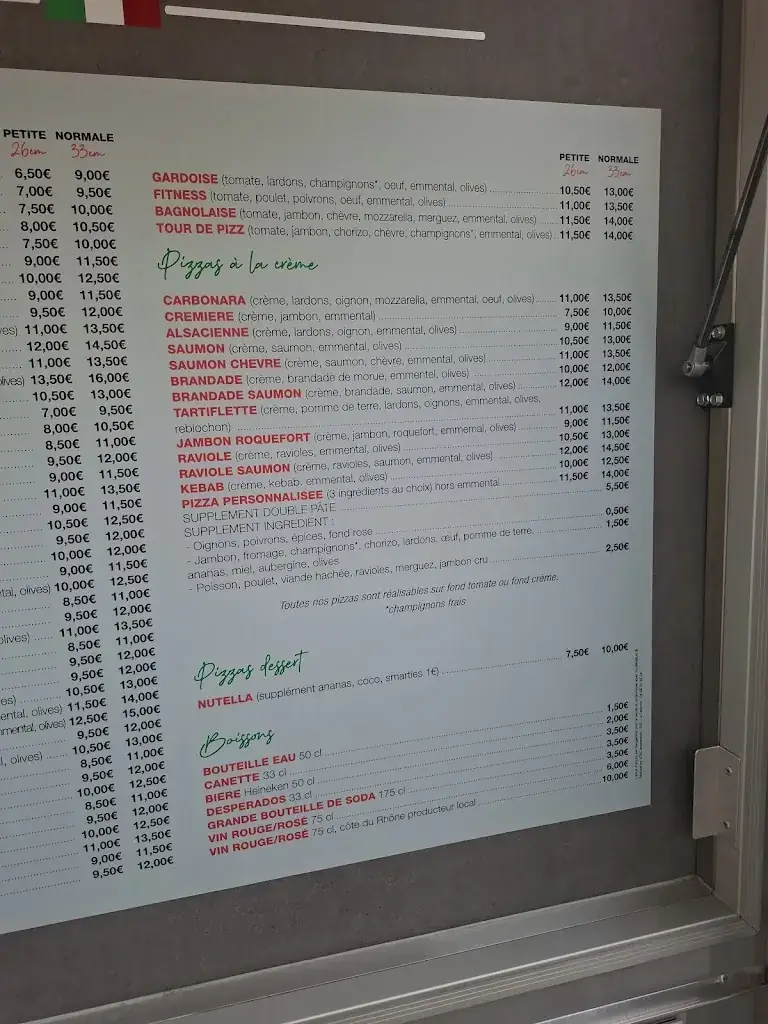 PETITE NORMALE
26cm 33cm
6,50€ 9,00€
7,00€ 9,50€
7,50€ 10,00€
8,00€ 10,50€
7,50€ 10,00€
9,00€ 11,50€
10,00€ 12,50€
9,00€ 11,50€
9,50€ 12,00€
es) 11,00€ 13,50€
12,00€ 14,50€
11,00€ 13,50€
olives) 13,50€ 16,00€
10,50€ 13,00€
7,00€ 9,50€
8,00€ 10,50€
8,50€ 11,00€
9,50€ 12,00€
9,00€ 11,50€
11,00€ 13,50€
9,00€ 11,50€
10,50€ 12,50€
9,50€ 12,00€
10,00€ 12,00€
9,00€ 11,50€
tal, olives) 10,00€ 12,50€
8,50€ 11,00€
9,50€ 12,00€
olives) 11,00€ 13,50€
8,50€ 11,00€
9,50€ 12,00€
9,50€ 12,00€
es) 10,50€ 13,00€
ental, olives) 11,50€ 14,00€
mmental, olives) 12,50€ 15,00€
9,50€ 12,00€
l, olives) 10,50€ 13,00€
8,50€ 11,00€
9,50€ 12,00€
10,00€ 12,50€
8,50€ 11,00€
9,50€ 12,00€
10,00€ 12,50€
11,00€ 13,50€
9,00€ 11,50€
9,50€ 12,00€
PETITE NORMALE
26cm 33cm
GARDOISE (tomate, lardons, champignons*, oeuf, emmental, olives) 10,50€ 13,00€
FITNESS (tomate, poulet, poivrons, oeuf, emmental, olives) 11,00€ 13,50€
BAGNOLAISE (tomate, jambon, chèvre, mozzarella, merguez, emmental, olives) 11,50€ 14,00€
TOUR DE PIZZ (tomate, jambon, chorizo, chevre, champignons*, emmental, olives) 11,50€ 14,00€
Pizzas à la crème
CARBONARA (crème, lardons, oignon, mozzarella, emmental, oeuf, olives) 11,00€ 13,50€
CREMIERE (crème, jambon, emmental) 7,50€ 10,00€
ALSACIENNE (crème, lardons, oignon, emmental, olives) 9,00€ 11,50€
SAUMON (crème, saumon, emmental, olives) 10,50€ 13,00€
SAUMON CHEVRE (crème, saumon, chèvre, emmental, olives) 11,00€ 13,50€
BRANDADE (crème, brandade de morue, emmentel, olives) 10,00€ 12,00€
BRANDADE SAUMON (crème, brandade, saumon, emmental, olives) 12,00€ 14,00€
TARTIFLETTE (crème, pomme de terre, lardons, oignons, emmental, olives,
reblochon) 11,00€ 13,50€
JAMBON ROQUEFORT (crème, jambon, roquefort, emmernal, olives) 9,00€ 11,50€
RAVIOLE (crème, ravioles, emmental, olives) 10,50€ 13,00€
RAVIOLE SAUMON (crème, ravioles, saumon, emmental, olives) 12,00€ 14,50€
KEBAB (crème, kebab, emmental, olives) 10,00€ 12,50€
PIZZA PERSONNALISEE (3 ingrédients au choix) hors emmental 11,50€ 14,00€
SUPPLEMENT DOUBLE PÂTE 5,50€
SUPPLEMENT INGREDIENT :
- Oignons, poivrons, épices, fond rose 0,50€
- Jambon, fromage, champignons*, chorizo, lardons, œuf, pomme de terre, 1,50€
ananas, miel, aubergine, olives
- Poisson, poulet, viande hachée, ravioles, merguez, jambon cru 2,50€
Toutes nos pizzas sont réalisables sur fond tomate ou fond crème.
*champignons frais
Pizzas dessert
NUTELLA (supplément ananas, coco, smarties 1€) 7,50€ 10,00€
Boissons
BOUTEILLE EAU 50 cl 1,50€
CANETTE 33 cl 2,00€
BIERE Heineken 50 cl 3,50€
DESPERADOS 33 cl 3,50€
GRANDE BOUTEILLE DE SODA 175 cl 3,50€
VIN ROUGE/ROSÉ 75 cl 6,00€
VIN ROUGE/ROSÉ 75 cl, côte du Rhône producteur local 10,00€